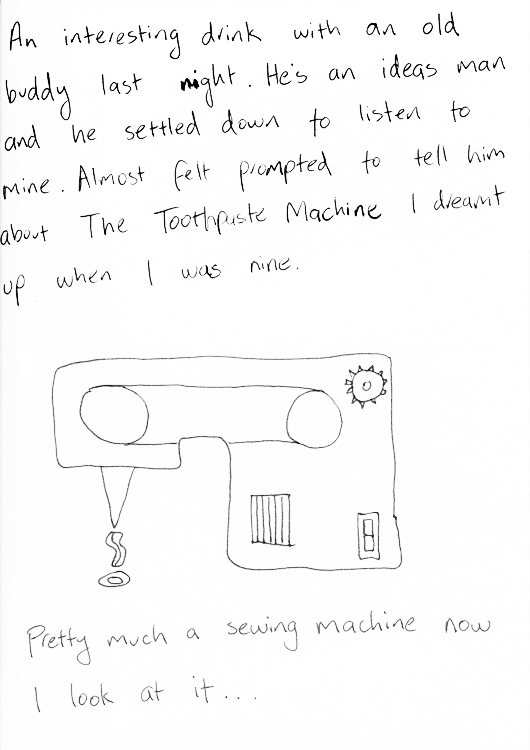 An interesting drink with an old
buddy last night. He's an ideas man
and he settled down to listen to
mine. Almost felt prompted to tell him
about The Toothpaste Machine I dreamt
up when I was nine.
Pretty much a sewing machine now
I look at it...